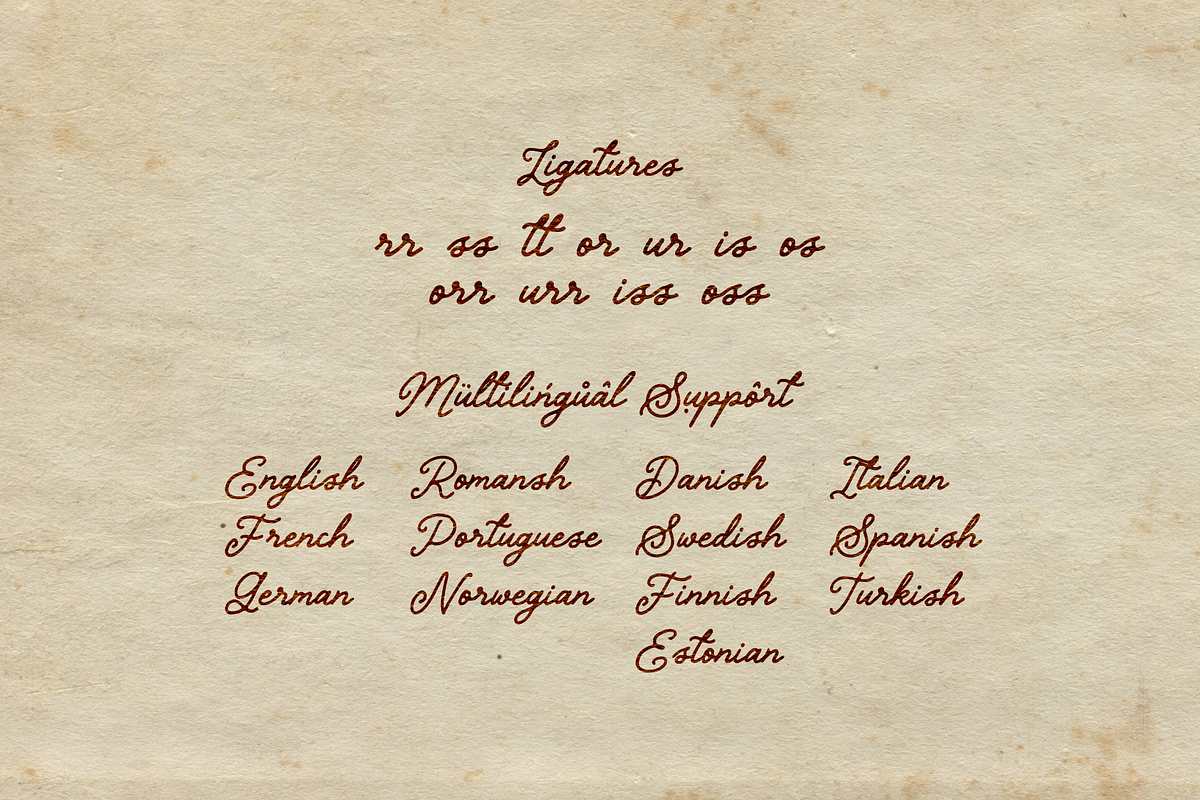 Ligatures
rr ss tt or ur is os
orr urr iss oss
Mültilińgůâl Sụppôrt
English Romansh Danish Italian
French Portuguese Swedish Spanish
German Norwegian Finnish Turkish
Estonian